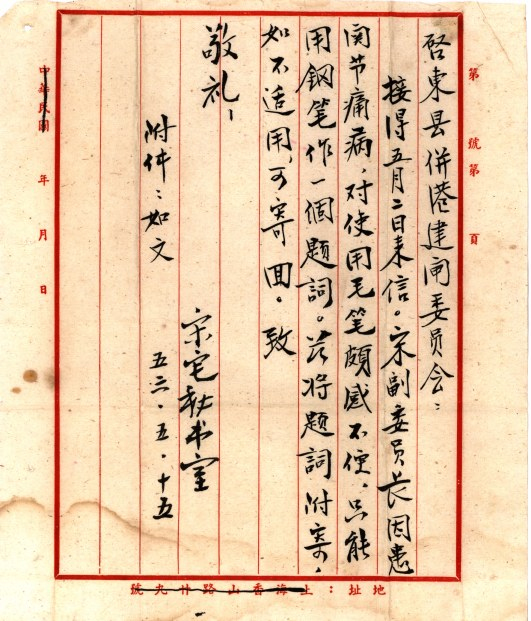 第　號第　頁
啓東县併港建闸委员会：
接得五月二日来信。宋副委员长因患
関节痛病，对使用毛笔頗感不便，只能
用鋼笔作一個題詞。兹将題詞附寄，
如不适用，可寄回。致
敬礼！
附件：如文
宋宅秘书室
五六．五．十五
中華民國　年　月　日
地址：上海香山路廿九號